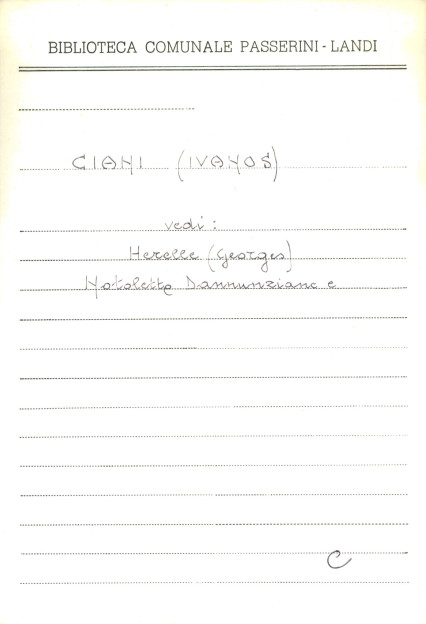 BIBLIOTECA COMUNALE PASSERINI-LANDI
CIANI (IVANOS)
vedi:
Herelle (Georges)
Notolette Dannunziane
C